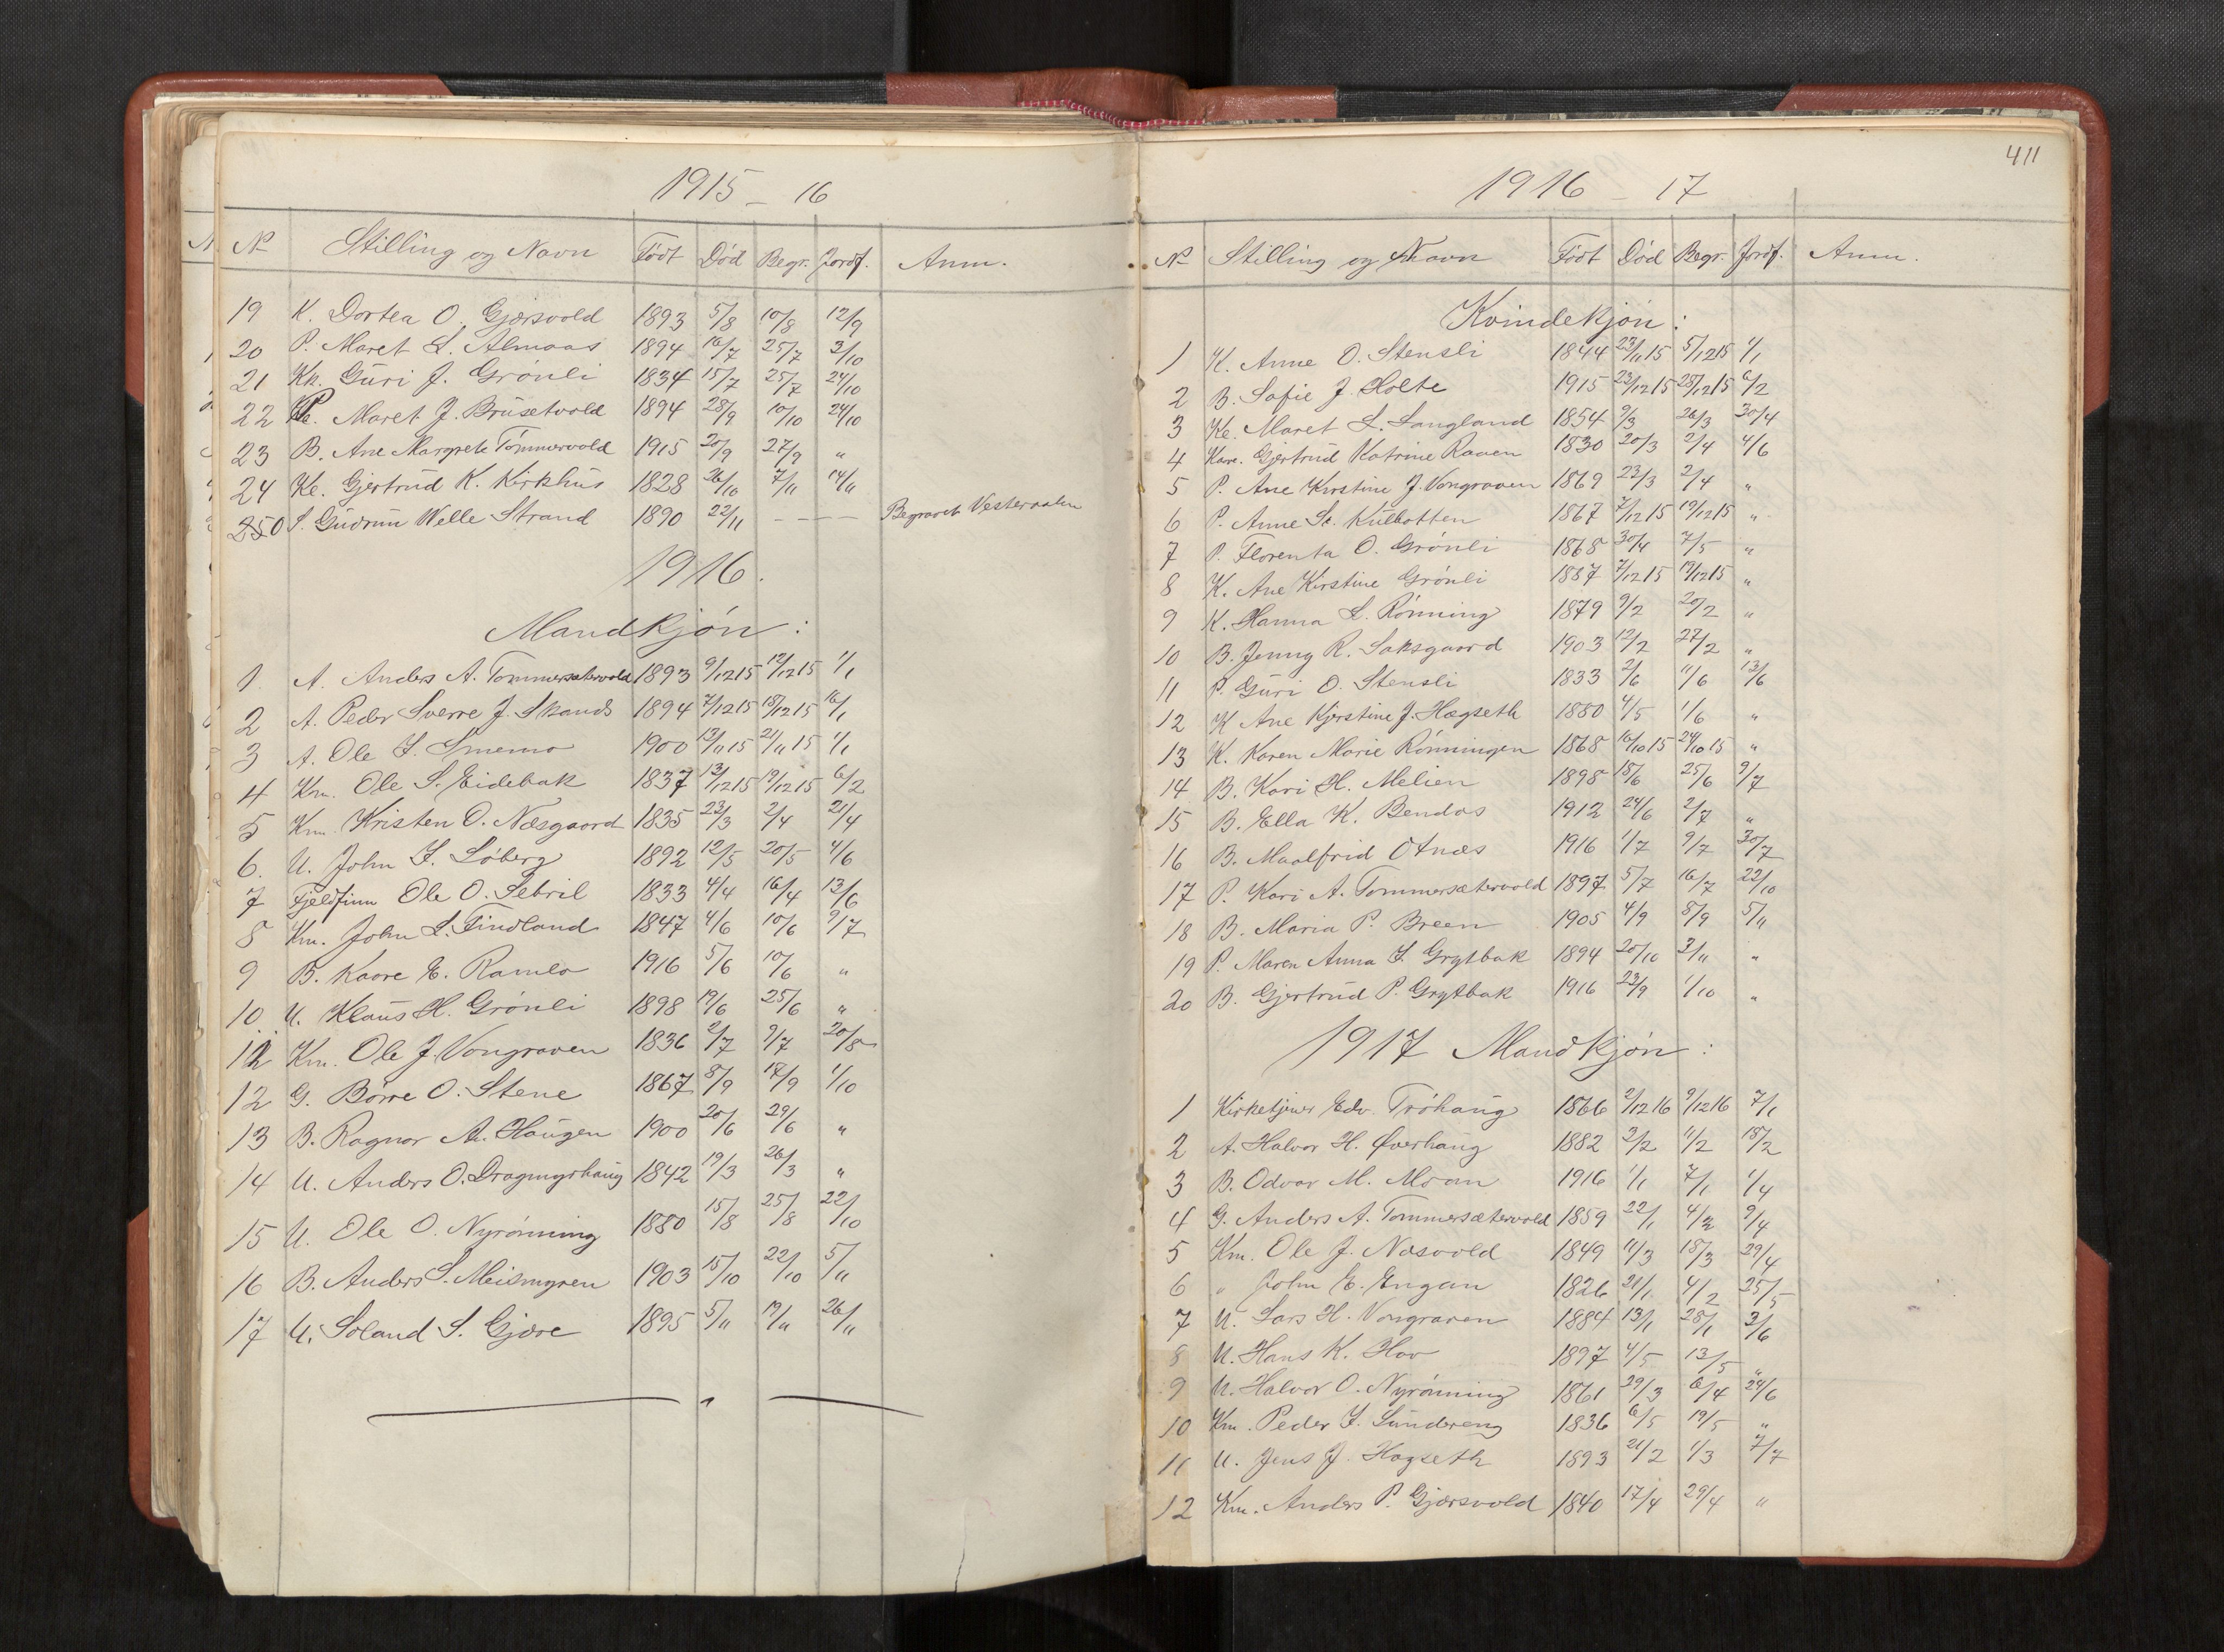 1915 – 16
No Stilling og Navn Født Død Begr. Jordf. Anm.
19 K. Dortea O. Gjørsvold 1893 5/8 10/8 12/9
20 P. Maret L. Almaas 1894 16/7 25/7 3/10
21 Kk. Guri J. Grønli 1834 15/7 25/7 24/10
22 Maret J. Brusetvold 1894 28/9 10/10 24/10
23 B. Ane Margrete Tømmervold 1915 20/9 27/9 "
24 Ke. Gjertrud K. Kirkhus 1828 26/10 7/11 14/11
S. Gudrun Welle Strand 1890 22/11 – – – Begravet Vesteraalen
1916.
Mandkjøn:
1. A. Anders A. Tommersætervold 1893 9/12 15 12/12 15 1/1
2 A. Peder Sverre J. Skands 1894 7/12 15 18/12 15 16/1
3 A. Ole I. Smemo 1900 13/11 15 21/11 15 1/1
4 Km. Ole S. Eidebak 1837 13/12 15 19/12 15 6/2
5 Km. Kristen O. Næsgaard 1835 23/3 2/4 21/4
6. U. John I. Løberg 1892 12/5 20/5 4/6
7 Fjeldfinn Ole O. Sebril 1833 4/4 16/4 13/6
8 Km. John L. Findland 1847 4/6 10/6 9/7
9 B. Kaare E. Ramlo 1916 5/6 10/6 "
10 U. Klaus H. Grønli 1898 19/6 25/6 "
11 Km. Ole J. Vongraven 1836 2/7 9/7 20/8
12 G. Børre O. Stene 1867 8/9 17/9 1/10
13 B. Ragnar A. Haugen 1900 20/6 29/6 "
14 U. Anders O. Dragmyrhaug 1842 19/3 26/3 "
15 U. Ole O. Nyrønning 1880 15/8 25/8 22/10
16 B. Anders S. Meismyren 1903 15/10 22/10 5/11
17 U. Soland S. Gjære 1895 5/11 19/11 26/11
411
1916 – 17
No Stilling og Navn Født Død Begr. Jordf. Anm.
Kvindekjøn:
1 K. Anne O. Stensli 1844 23/11 15 5/12 15 1/1
2 B. Sofie J. Holte 1915 23/12 15 28/12 15 6/2
3 Ke. Maret L. Langland 1854 9/3 26/3 30/4
4 Kaare. Gjertrud Katrine Raaen 1830 20/3 2/4 4/6
5 P. Ane Kirstine J. Vongraven 1869 23/3 2/4 "
6 P. Anne St. Kulbotten 1867 7/12 15 19/12 15 "
7 P. Florenta O. Grønli 1868 30/4 7/5 "
8 K. Ane Kirstine Grønli 1887 7/12 15 19/12 15 "
9 K. Hanna L. Rønning 1879 9/2 20/2 "
10 B. Jenny R. Saksgaard 1903 12/2 27/2 "
11 P. Guri O. Stensli 1833 2/6 11/6 13/6
12 K Ane Kjerstine J. Hægseth 1880 4/5 1/6 "
13 K. Karen Marie Rønningen 1868 16/10 15 24/10 15 "
14 B. Kari H. Melien 1898 18/6 25/6 9/7
15 B. Ella K. Bendos 1912 24/6 2/7 "
16 B. Maalfrid Otnæs 1916 1/7 9/7 30/7
17 P. Kari A. Tommersætervold 1897 5/7 16/7 22/10
18 B. Maria P. Breen 1905 4/9 8/9 5/11
19 P. Maren Anna I. Grytbak 1894 20/10 3/11 "
20 B. Gjertrud P. Grytbak 1916 23/9 1/10 "
1917 Mandkjøn:
1 Kirketjener Edv. Trøhaug 1866 2/12 16 9/12 16 7/1
2 A. Halvor H. Øverhaug 1882 3/2 11/2 18/2
3 B. Odvar M. Moan 1916 1/1 7/1 1/4
4 G. Anders A. Tommersætervold 1859 22/1 4/2 9/4
5 Km. Ole J. Næsvold 1849 11/3 18/3 29/4
6 " John E. Engan 1826 21/1 4/2 25/5
7 U. Lars H. Vongraven 1884 13/1 28/1 3/6
8 U. Hans K. Hov 1897 4/5 13/5 "
9 U. Halvor O. Nyrønning 1861 29/3 6/4 24/6
10 Km. Peder I. Sundreng 1836 6/5 19/5 "
11 U. Jens J. Hagseth 1893 21/2 1/3 7/7
12 Km. Anders P. Gjørsvold 1840 17/4 29/4 "